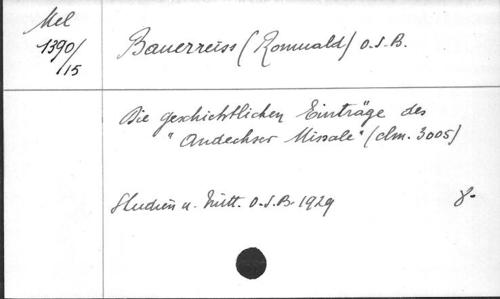 Mel
1390/
/15
Bauerreiss (Romuald) O.S.B.
Die geschichtlichen Einträge des
"Andechser Missale" (clm. 3005)
Studien u. Mitt. O.S.B. 1929 8-